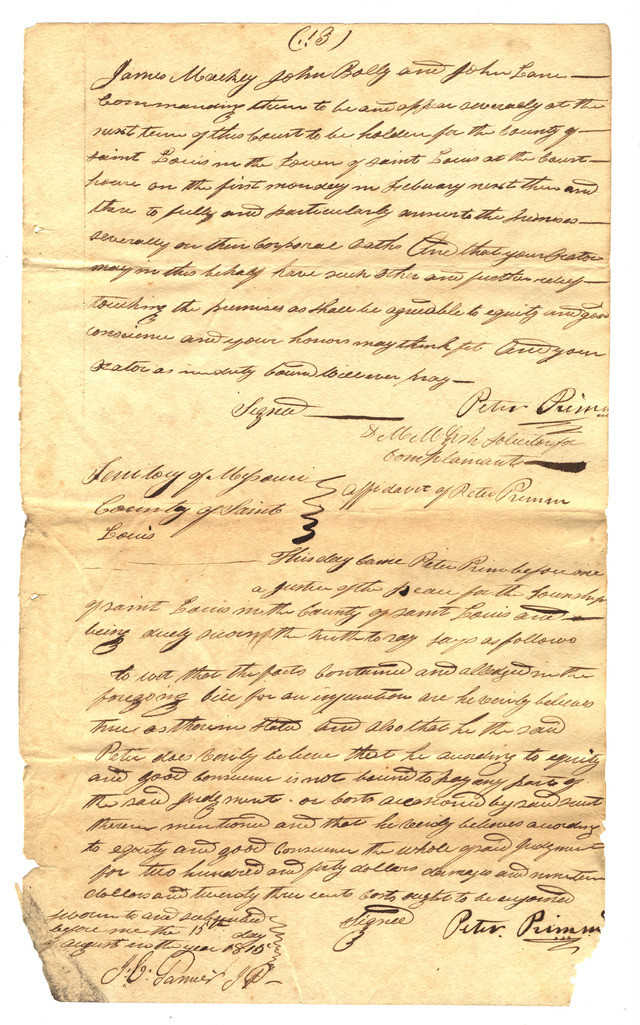 (13)
James Mackey John Bolly and John Lane
Commanding them to be and appear severally at the
next term of this Court to be holden for the County of
saint Louis in the Town of saint Louis at the Court
house on the first monday in February next then and
there to fully and particularly answer to the premises
severally on their Corporal oaths And that your orator
may in this behalf have such other and further relief
touching the premises as shall be agreeable to equity and good
conscience and your honors may think fit And your
orator as in duty bound will ever pray
Signed Peter Primm
Solicitor for
Complainants
Territory of Missouri
County of Saint
Louis
Affidavit of Peter Primm
This day came Peter Prim before me
a Justice of the peace for the Township
of saint Louis in the County of saint Louis and
being duely sworn the truth to say says as follows
to wit that the facts Contained and alledged in the
foregoing bill for an injunction are he verily believes
true as therein stated and also that he the said
Peter does verily believe that he according to equity
and good Conscience is not bound to pay any part of
the said Judgment or Costs occasioned by said suit
therein mentioned and that he verily believes according
to equity and good Conscience the whole of said Judgment
for two hundred and forty dollars damages and nineteen
dollars and twenty three cents Costs ought to be enjoined
sworn to and subscribed
before me the 15th day
of august in the year 1815
Signed Peter Primm
J. P.